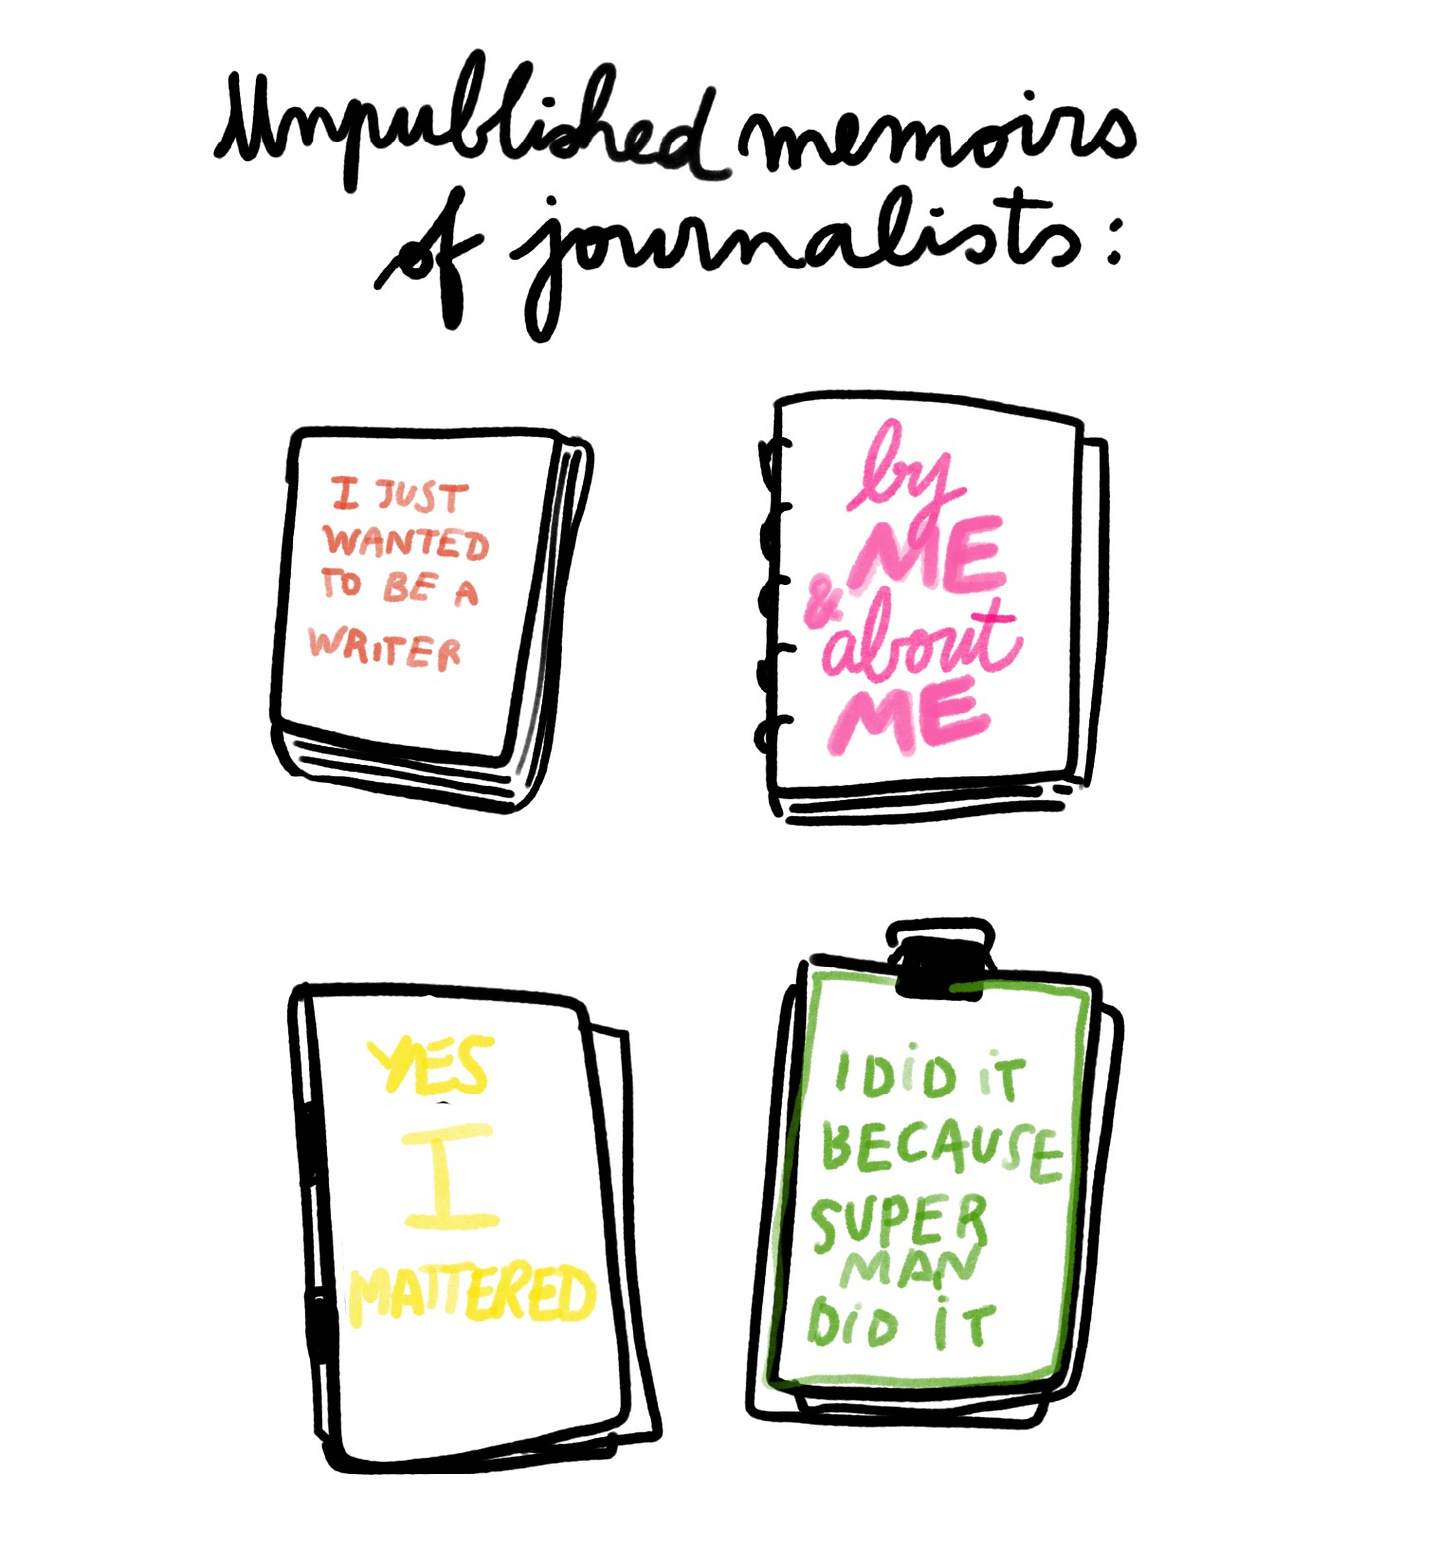 Unpublished memoirs
of journalists:
I JUST
WANTED
TO BE A
WRITER
by
ME
& about
ME
YES
I
MATTERED
I DiD iT
BECAUSE
SUPER
MAN
DiD iT